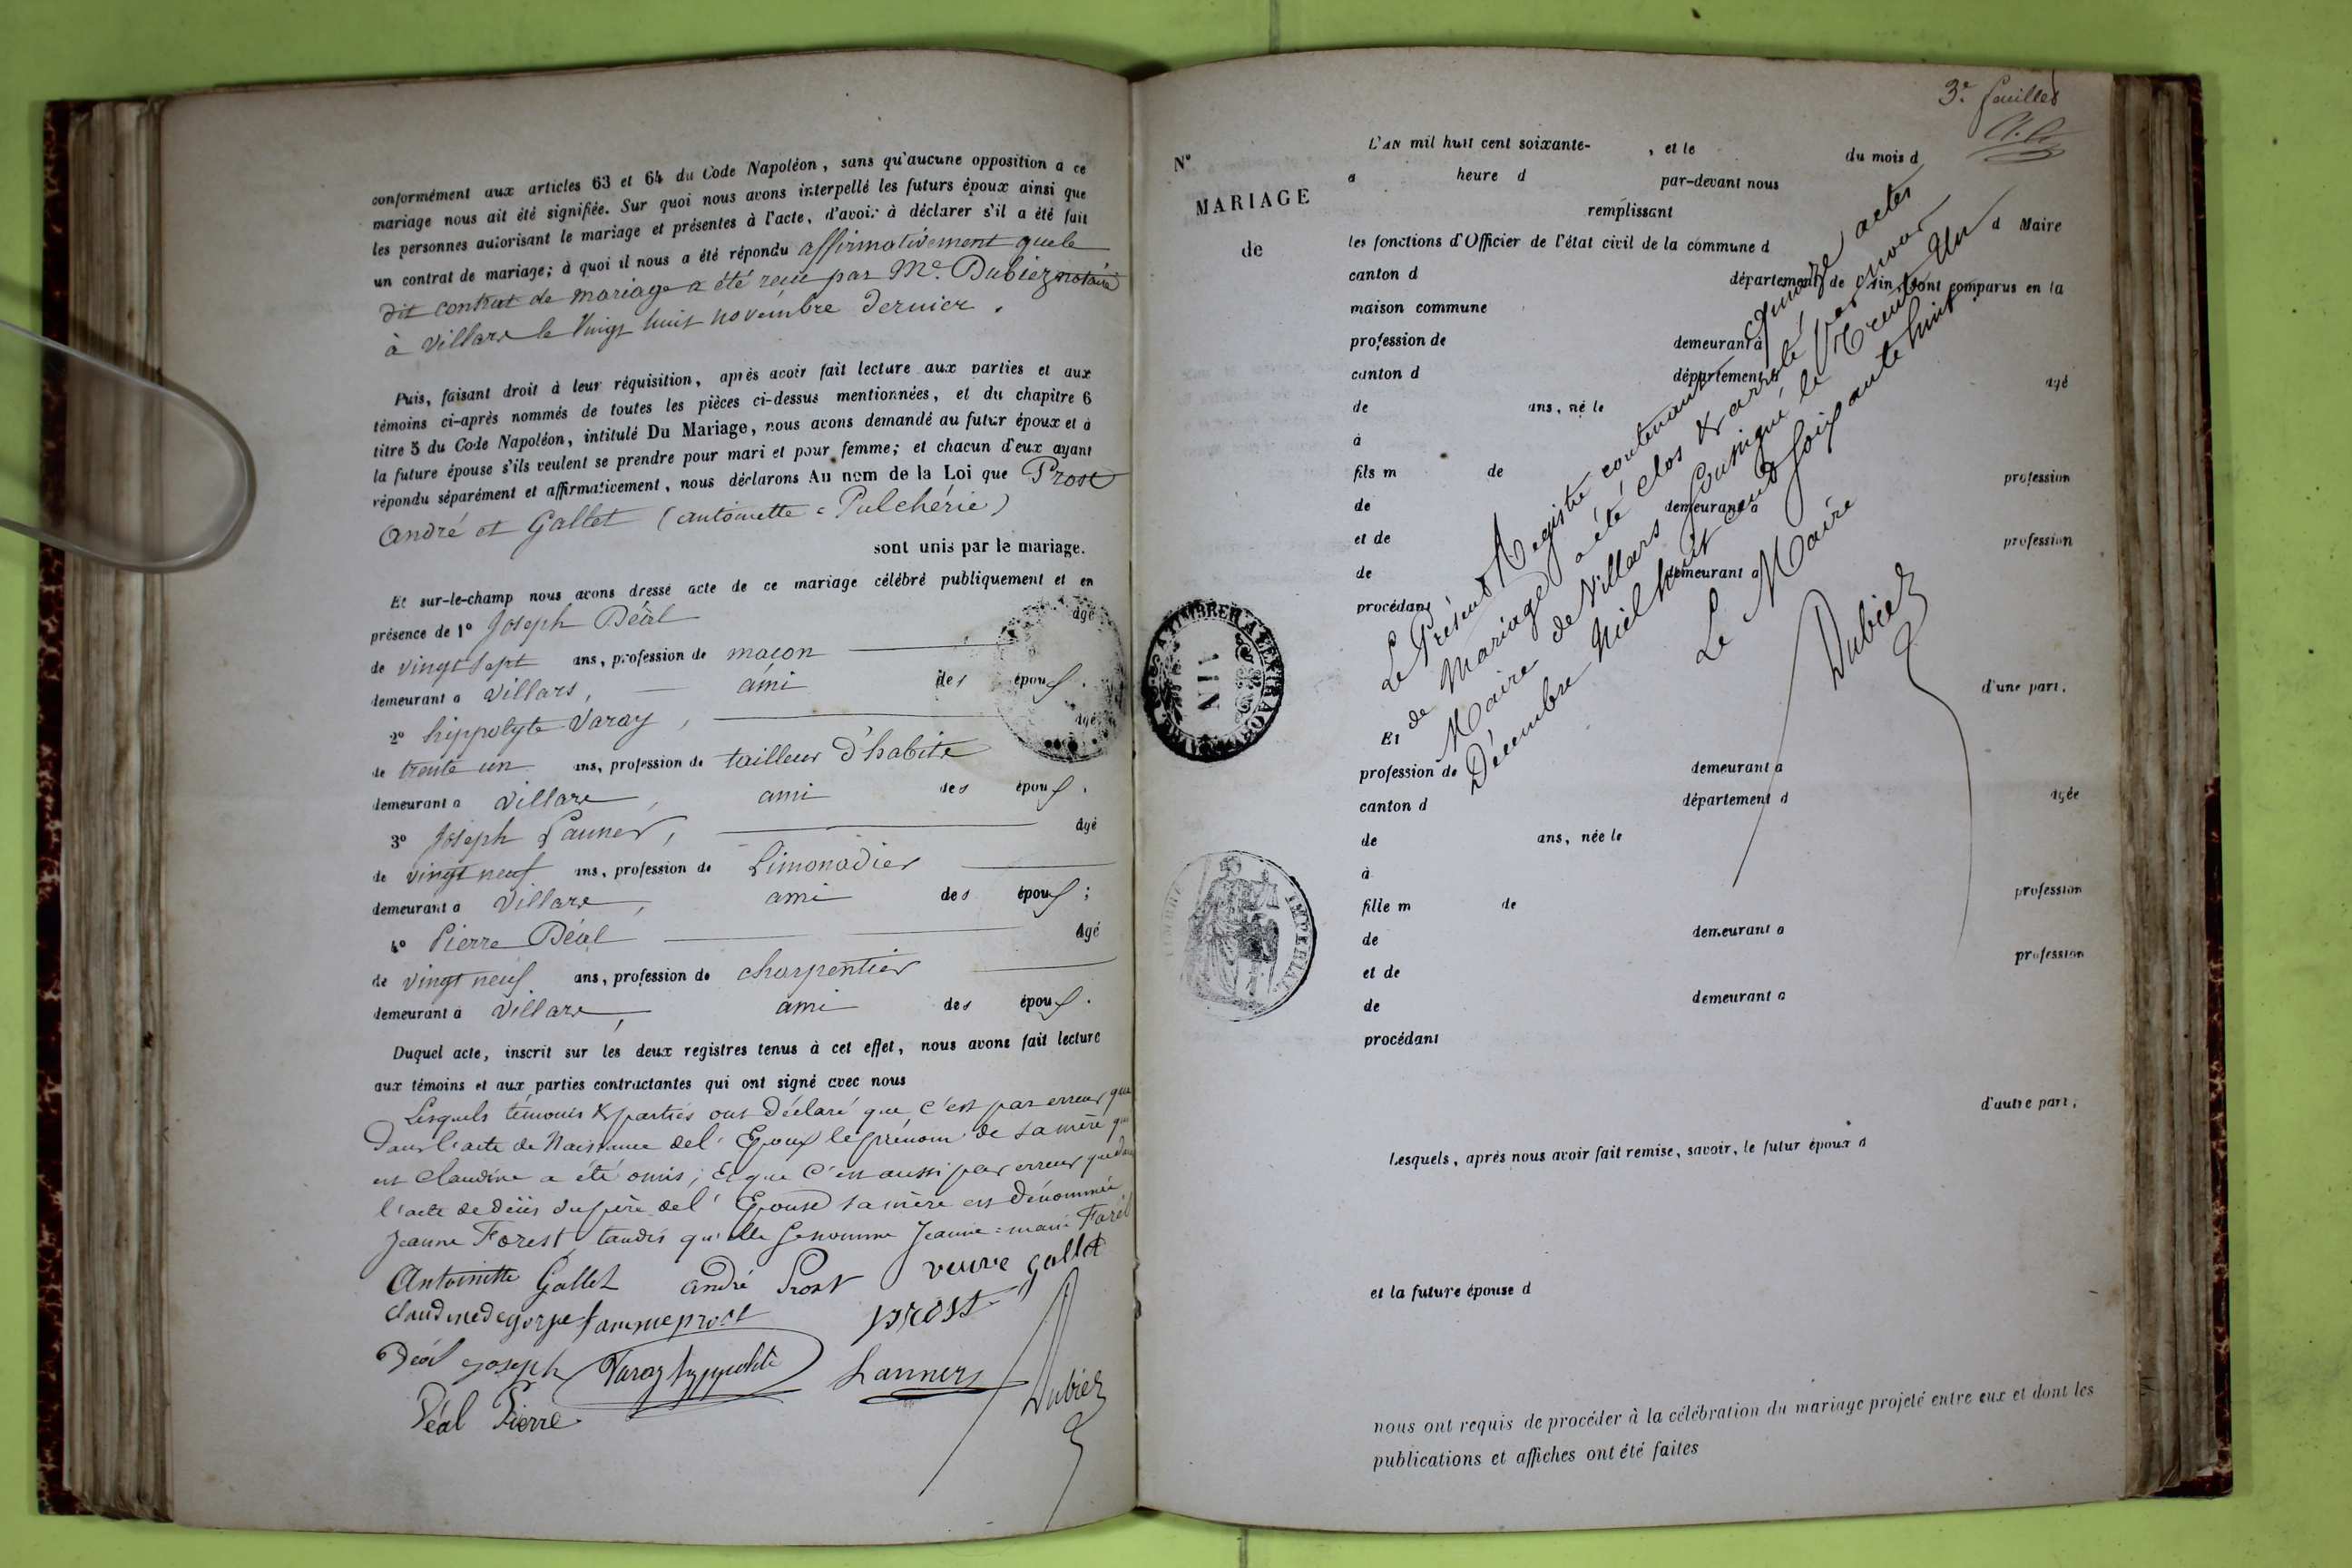 conformément aux articles 63 et 64 du Code Napoléon, sans qu'aucune opposition a ce
mariage nous ait été signifiée. Sur quoi nous avons interpellé les futurs époux ainsi que
les personnes autorisant le mariage et présentes à l'acte, d'avoir à déclarer s'il a été fait
un contrat de mariage; à quoi il nous a été répondu affirmativement que le
dit contrat de mariage a été reçu par Me. Dubiez notaire
à Villars le Vingt huit novembre dernier.
Puis, faisant droit à leur réquisition, après avoir fait lecture aux parties et aux
témoins ci-après nommés de toutes les pièces ci-dessus mentionnées, et du chapitre 6
titre 5 du Code Napoléon, intitulé Du Mariage, nous avons demandé au futur époux et à
la future épouse s'ils veulent se prendre pour mari et pour femme; et chacun d'eux ayant
répondu séparément et affirmativement, nous déclarons Au nom de la Loi que Prost
André et Gallet (antoinette = Pulchérie)
sont unis par le mariage.
Et sur-le-champ nous avons dressé acte de ce mariage célébré publiquement et en
présence de 1° Joseph Déal agé
de vingt sept ans, profession de maçon
demeurant a Villars, ami des époux.
2° hippolyte Varay, agé
de trente un ans, profession de tailleur d'habits
demeurant a Villars, ami des époux.
3° Joseph Lanner, agé
de vingt neuf ans, profession de Limonadier
demeurant a Villars, ami des époux;
4° Pierre Déal agé
de vingt neuf ans, profession de charpentier
demeurant à Villars, ami des époux.
Duquel acte, inscrit sur les deux registres tenus à cet effet, nous avons fait lecture
aux témoins et aux parties contractantes qui ont signé avec nous
Lesquels témoins & parties ont déclaré que c'est par erreur que
dans l'acte de Naissance de l'Epoux le prénom de sa mère qui
est Claudine a été omis; et que c'est aussi par erreur que dans
l'acte de décès du père de l'Epouse sa mère est dénommée
Jeanne Forest, tandis qu'elle se nomme Jeanne = marie
Antoinette Gallet andré Prost veuve gallet
Claudine degorge famme prost prost
Déal joseph Varay hyppolite Lanners Dubiez
Déal Pierre
3e. feuillet
N°
MARIAGE
de
L'AN mil huit cent soixante- , et le du mois d
a heure d par-devant nous
remplissant
les fonctions d'Officier de l'état civil de la commune d d Maire
canton d département de l'Ain, sont comparus en la
maison commune
profession de demeurant à
canton d département d agé
de ans, né le
à
fils m de profession
de demeurant a
et de profession
de demeurant a
procédant
Le Présent Registre contenant quinze actes
de Mariages a été clos & arrêté par nous
Maire de Villars soussigné le trente un
Décembre Mil huit cent soixante huit.
Le Maire
Dubiez
d'une part.
Et
profession de demeurant a
canton d département d agée
de ans, née le
à
fille m de profession
de demeurant a
et de profession
de demeurant a
procédant
d'autre part;
Lesquels, après nous avoir fait remise, savoir, le futur époux d
et la future épouse d
nous ont requis de procéder à la célébration du mariage projeté entre eux et dont les
publications et affiches ont été faites